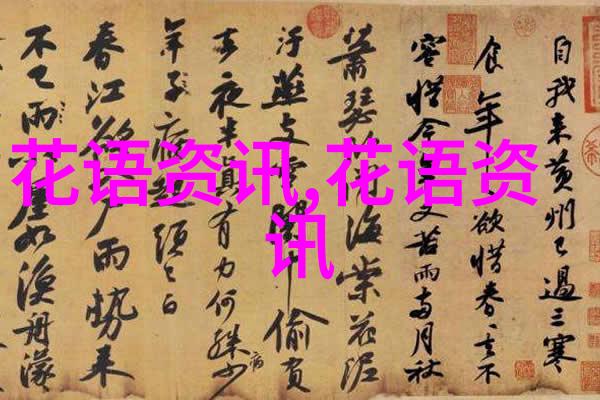 花语资讯,花语资
讯
自我来黄州已過三寒
食年〻欲惜春〻去不
容惜今年又苦雨兩月秋
蕭瑟卧聞海棠花泥
汙燕支雪闇中偷負
去夜半真有力何殊少
病
年子病起頭已白
春江欲入戶雨勢来
不已雨小屋如漁舟濛